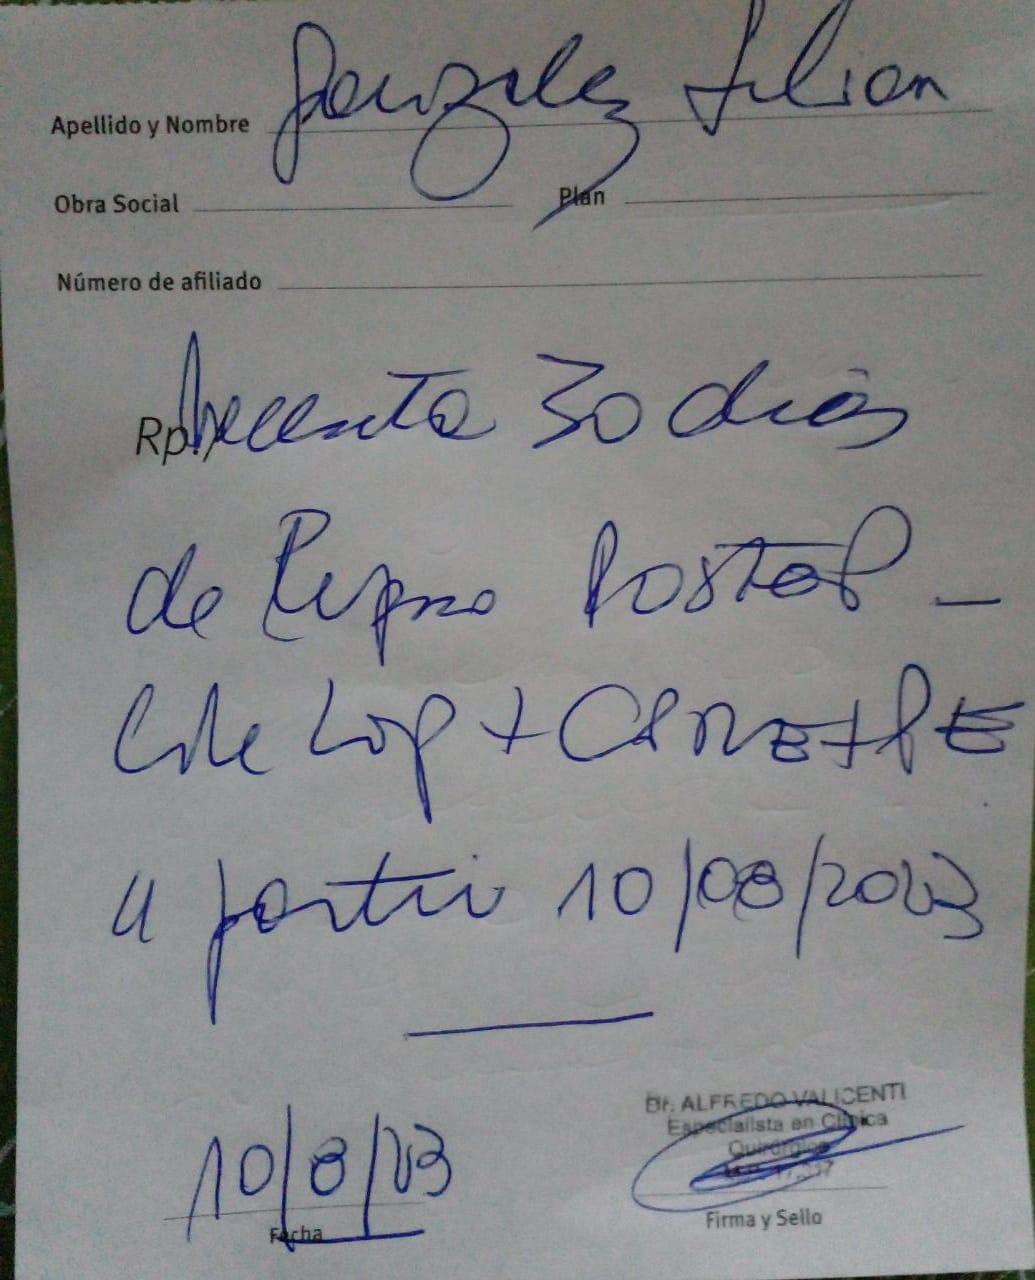 Apellido y Nombre Gonzalez Lilian
Obra Social Plan
Número de afiliado
Rp./ Necesita 30 dias
de Reposo PostoP -
Cole Lap +
a partir 10/08/2023
10/8/23
Fecha
Dr. ALFREDO VALICENTI
Especialista en Clínica
Quirúrgica
Firma y Sello